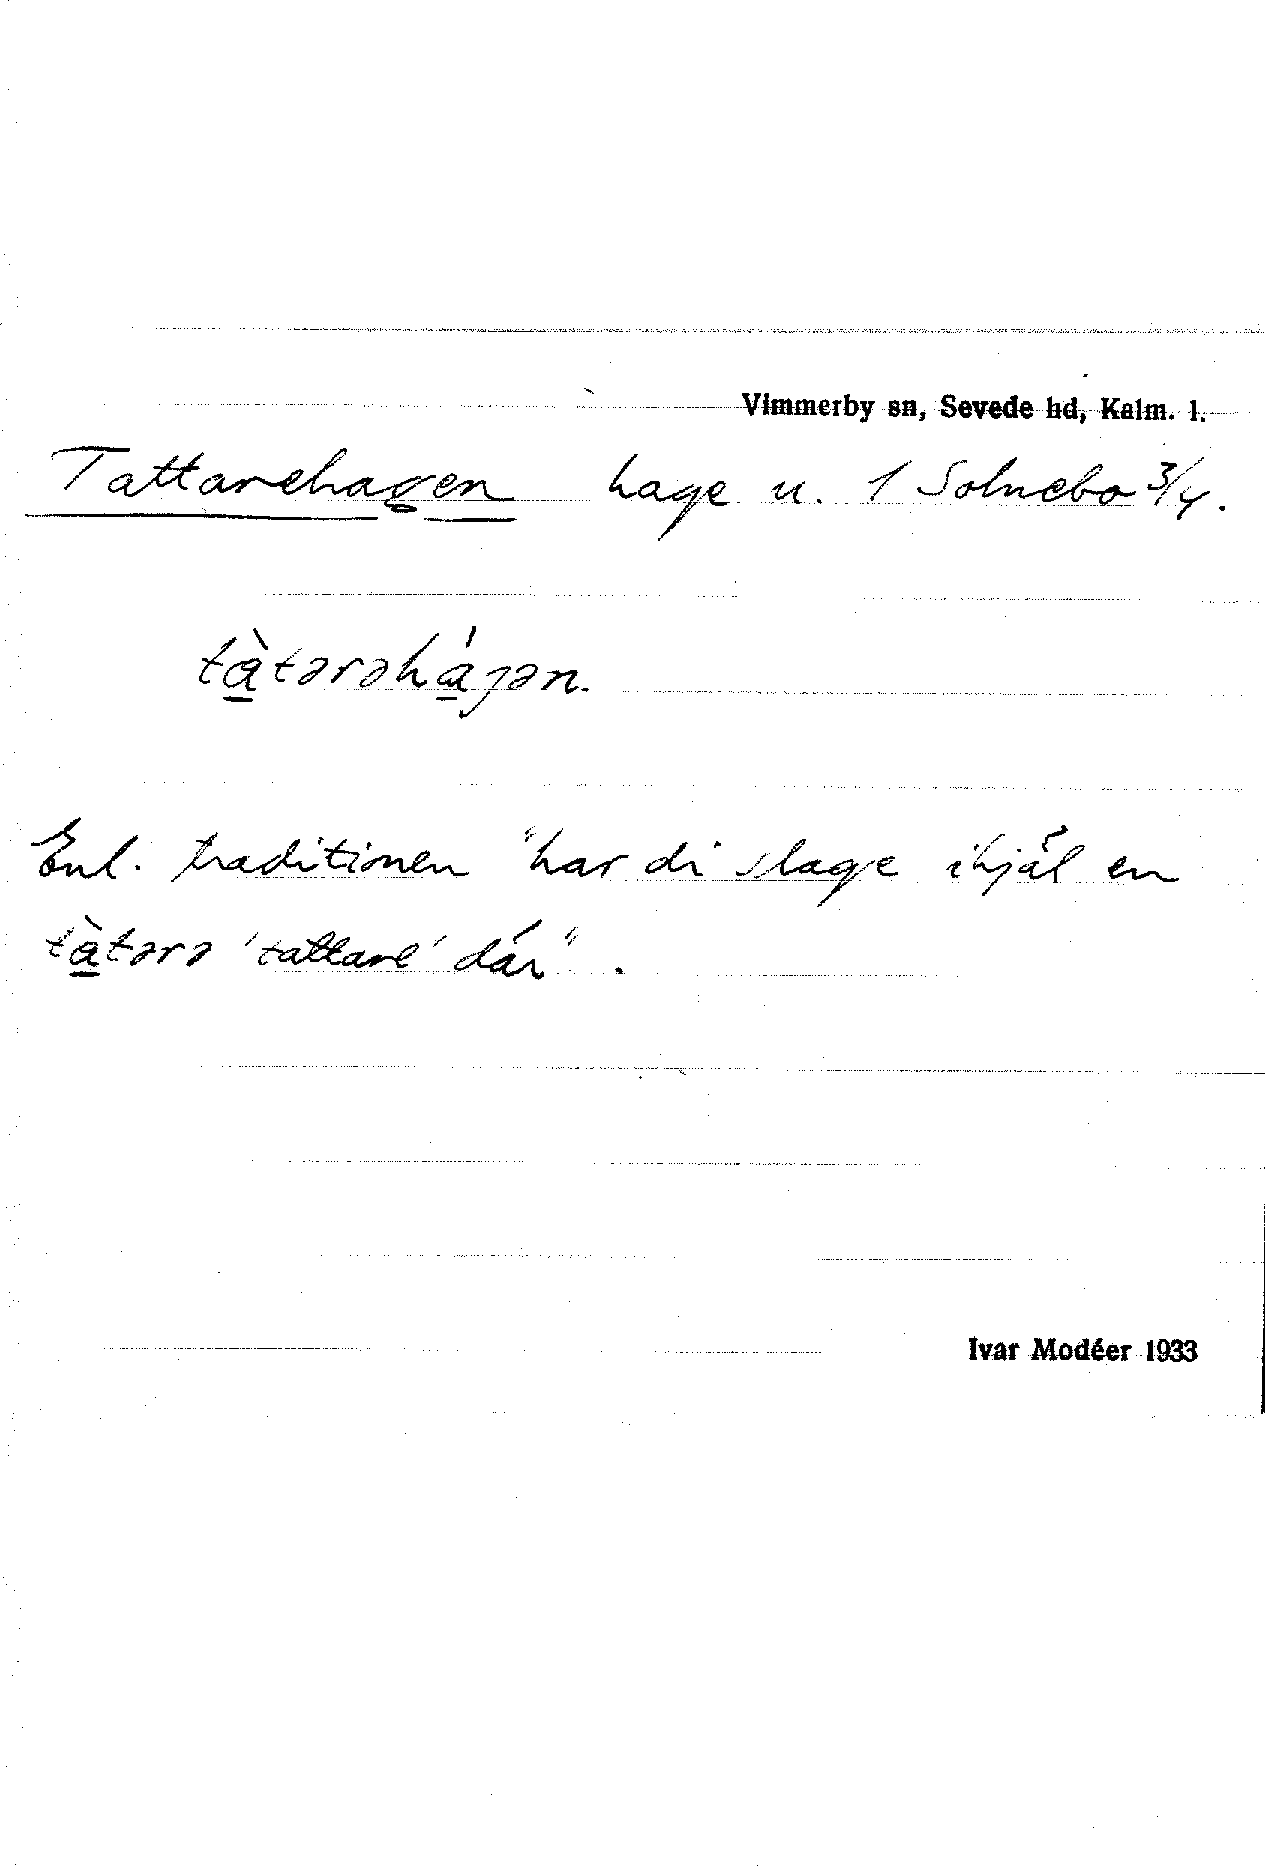 Vimmerby sn, Sevede hd, Kalm. l.
Tattarehagen hage u. 1 Solnebo 3/4.
tà̱tərəhá̱ɡən.
Enl. traditionen "har di slage ihjäl en
tà̱tərə 'tattare' där".
Ivar Modéer 1933